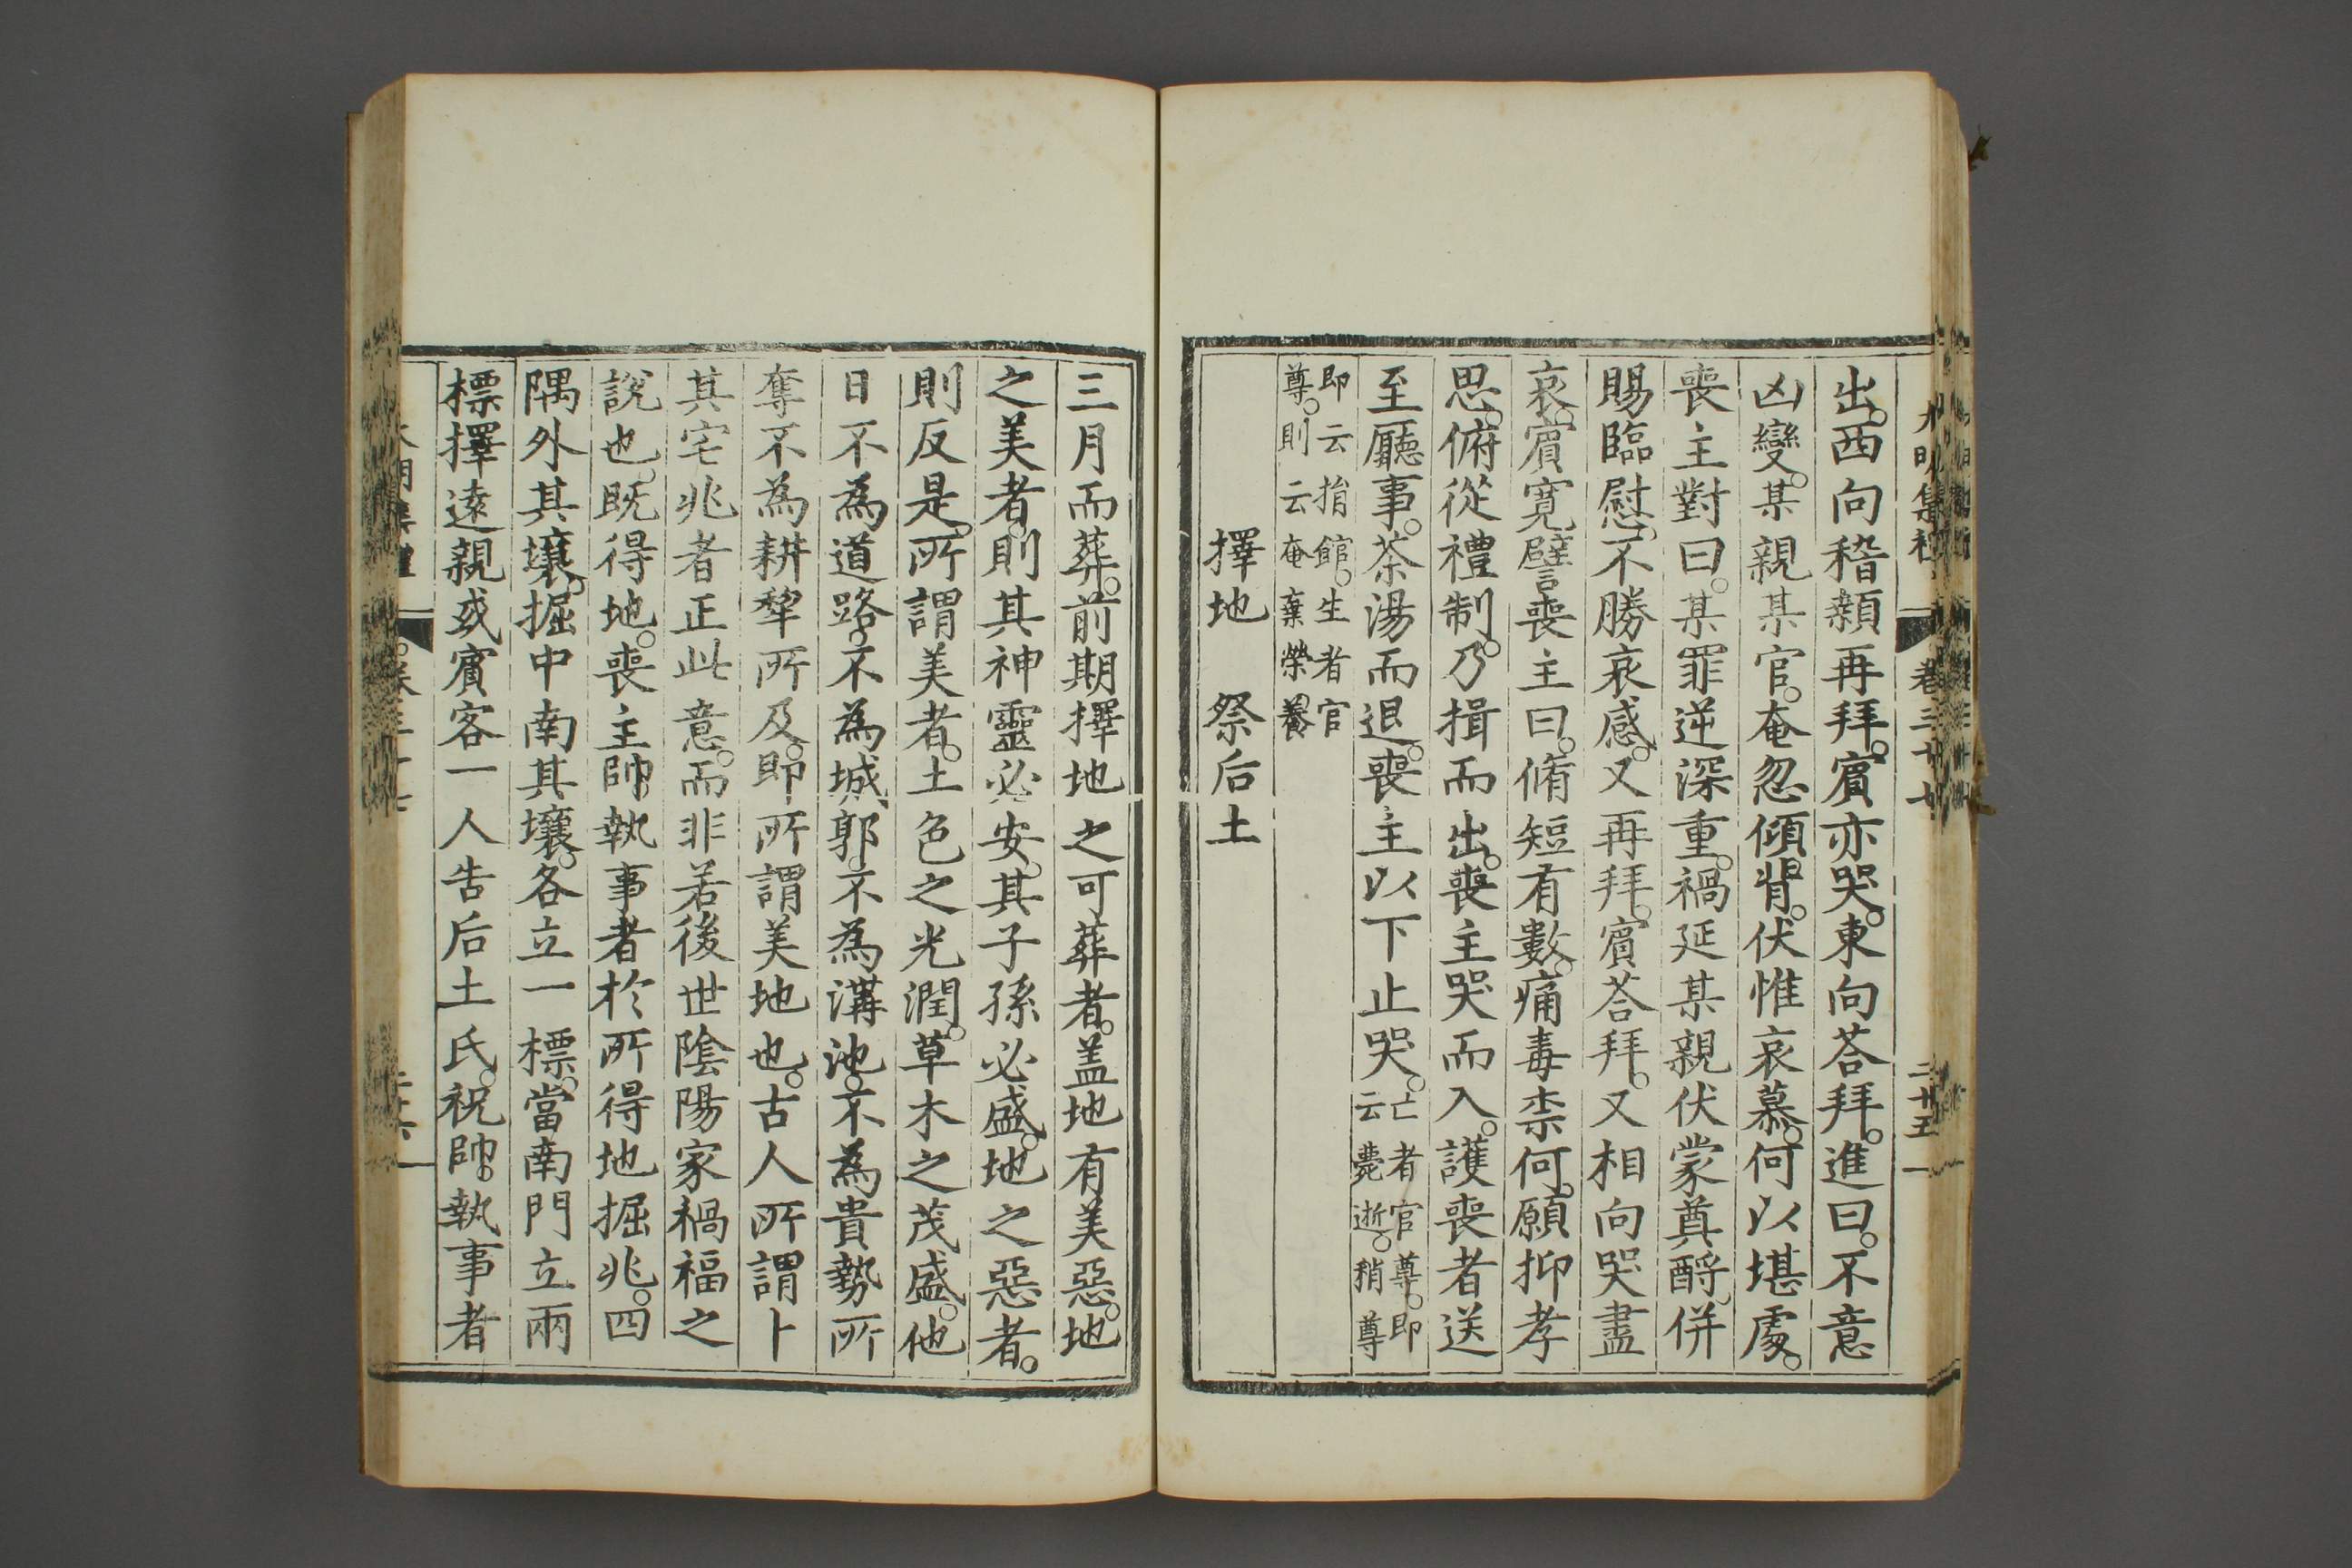 出。西向稽顙再拜。賓亦哭。東向荅拜。進曰。不意
凶變。某親某官。奄忽傾背。伏惟哀慕。何以堪處。
喪主對曰。某罪逆深重。禍延某親伏蒙奠酹。併
賜臨慰。不勝哀感。又再拜。賓荅拜。又相向哭盡
哀。賓寬譬喪主曰。脩短有數。痛毒柰何。願抑孝
思。俯從禮制。乃揖而出。喪主哭而入。護喪者送
至廳事。茶湯而退。喪主以下止哭。亡者官尊。即
云薨逝。稍尊
即云捐館。生者官
尊。則云奄棄榮養
擇地　祭后土
三月而葬。前期擇地之可葬者。盖地有美惡。地
之美者。則其神靈必安。其子孫必盛。地之惡者。
則反是。所謂美者。土色之光潤。草木之茂盛。他
日不為道路。不為城郭。不為溝池。不為貴勢所
奪不為耕犂所及。即所謂美地也。古人所謂卜
其宅兆者正此意。而非若後世陰陽家禍福之
說也。既得地。喪主帥執事者於所得地掘兆。四
隅外其壤。掘中南其壤。各立一標。當南門立兩
標擇遠親或賓客一人告后土氏。祝帥。執事者